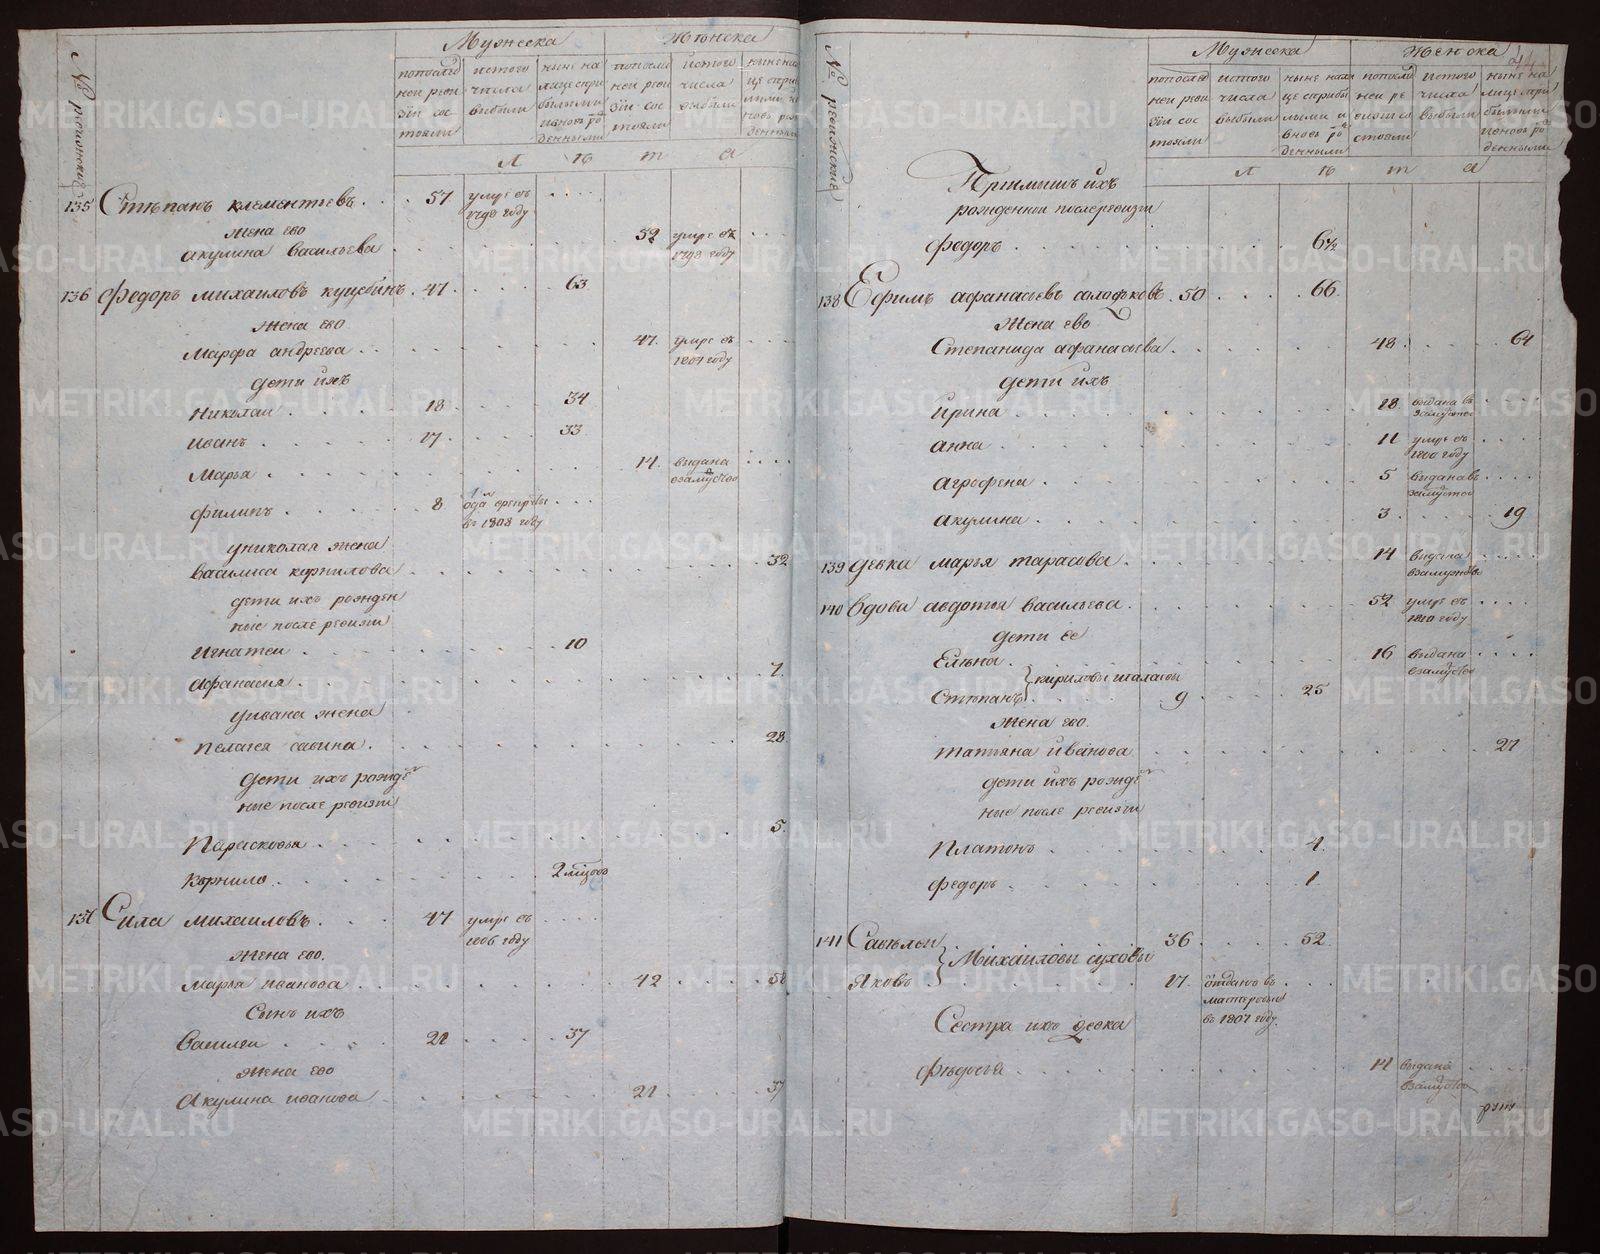 № ревижские
Мужеска
Женска
попослед
ней реви
зiи сос
тояли
истого
числа
выбыли
ныне на
лице спри
былыми
ивновь ро
жденными
попосле
ней реви
зiи сос
тояли
истого
числа
выбыли
ныне на
Л ѣ т а
135 Стѣпанъ клементьевъ . . 57 умре въ . . . .
1798 году
жена ево
акулина Васильева . . . 52 умре въ . . .
1798 году
136 Федоръ михаиловъ . 47 . . . 63
жена ево
Марфа андреева . . . 47 умре въ . . .
1807 году
дети ихъ
Николаи . . . 18 . . . 34
иванъ . . . 17 . . . 33
Марья . . . 14 выдана . . .
взамуство
филипъ . . . 8 . . .
въ 1808 году
униколая жена
василиса корнилова . . . 32
дети ихъ рожден
ные после ревизiи
игнатеи . . . 10
афанасия . . . 7
уивана жена
пелагея савина . . . 28
дети ихъ рожде
ные после ревизiи
Парасковья . . . 5
Корнило . . . 2 мсцовъ
137 Сила михаиловъ . . . 47 умре въ . . .
1806 году
жена ево
марья иванова . . . 42 . . . 58
Сынъ ихъ
Василеи . . . 21 . . . 37
жена ево
Акулина иванова . . . 21 . . . 37
№ ревижские
Мужеска
Женска
попослед
ней реви
зiи сос
тояли
истого
числа
выбыли
ныне нали
це сприбы
лыми и
вновь ро
жденными
попосле
ней ре
визiи
стояли
истого
числа
выбыли
ныне на
лице спри
былыми
ивновь ро
жденными
Л ѣ т а
Прiимышъ ихъ
рожденнои послеревизiи
федоръ . . . 6½
138 Ефимъ афанасьевъ . 50 . . . 66
жена ево
Степанида афанасьева . . . 48 . . . 64
дети ихъ
ирина . . . 18 выдана въ . . .
замуство
анна . . . 11 умре въ . . .
1800 году
аграфена . . . 5 выдана въ . . .
замуство
акулина . . . 3 . . . 19
139 девка марья тарасова . . . 14 выдана . . .
взамужство
140 вдова авдотья васильева . . . 52 умре въ . . .
1810 году
дети ее
Елѣна . . . 16 выдана . . .
взамуство
кириловы
Стѣпанъ . . . 9 . . . 25
жена ево
татьяна иванова . . . 27
дети ихъ рожде
ные после ревизiи
платонъ . . . 4
федоръ . . . 1
141 Савѣлеи . 36 . . . 52
Михаиловы суховы
Яковъ . . . 17 отданъ въ . . .
мастеровые
въ 1807 году
Сестра ихъ девка
Фѣдосья . . . 14 выдана . . .
взамуство
METRIKI.GASO-URAL.RU